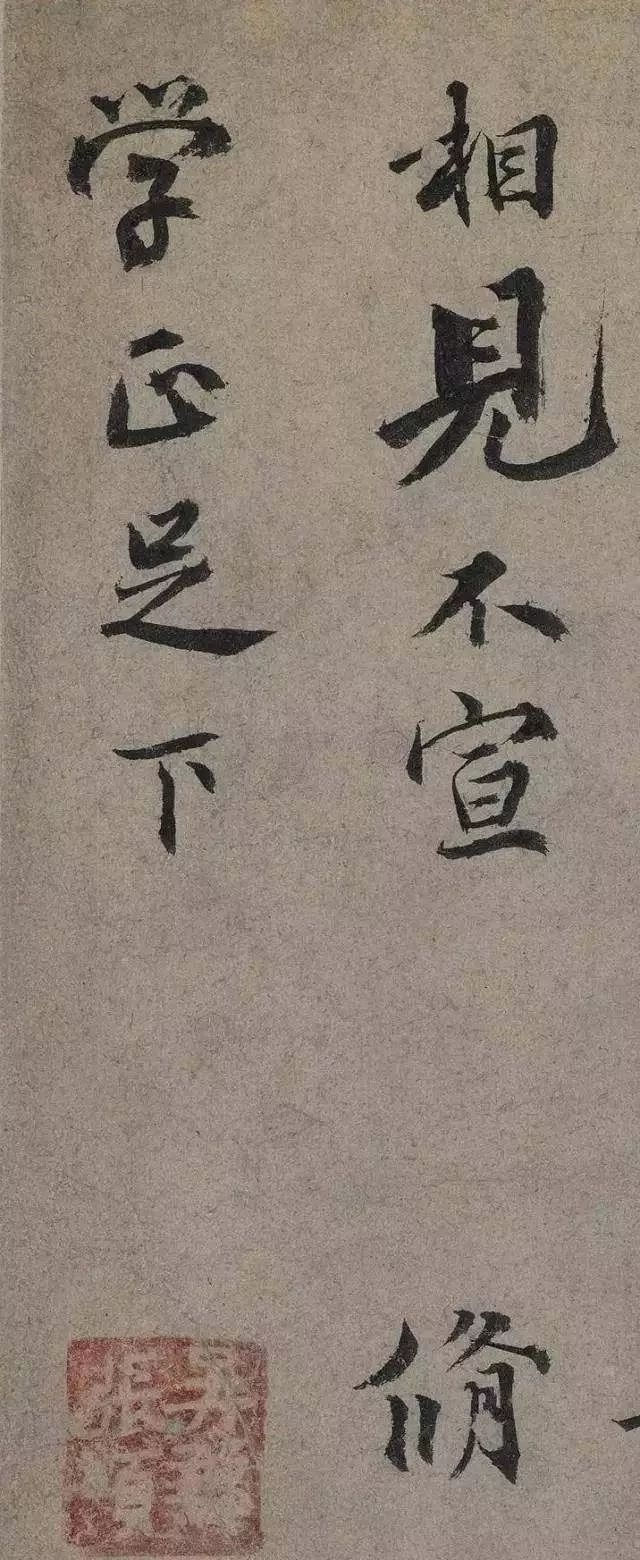 相見不宣
脩
学正足下